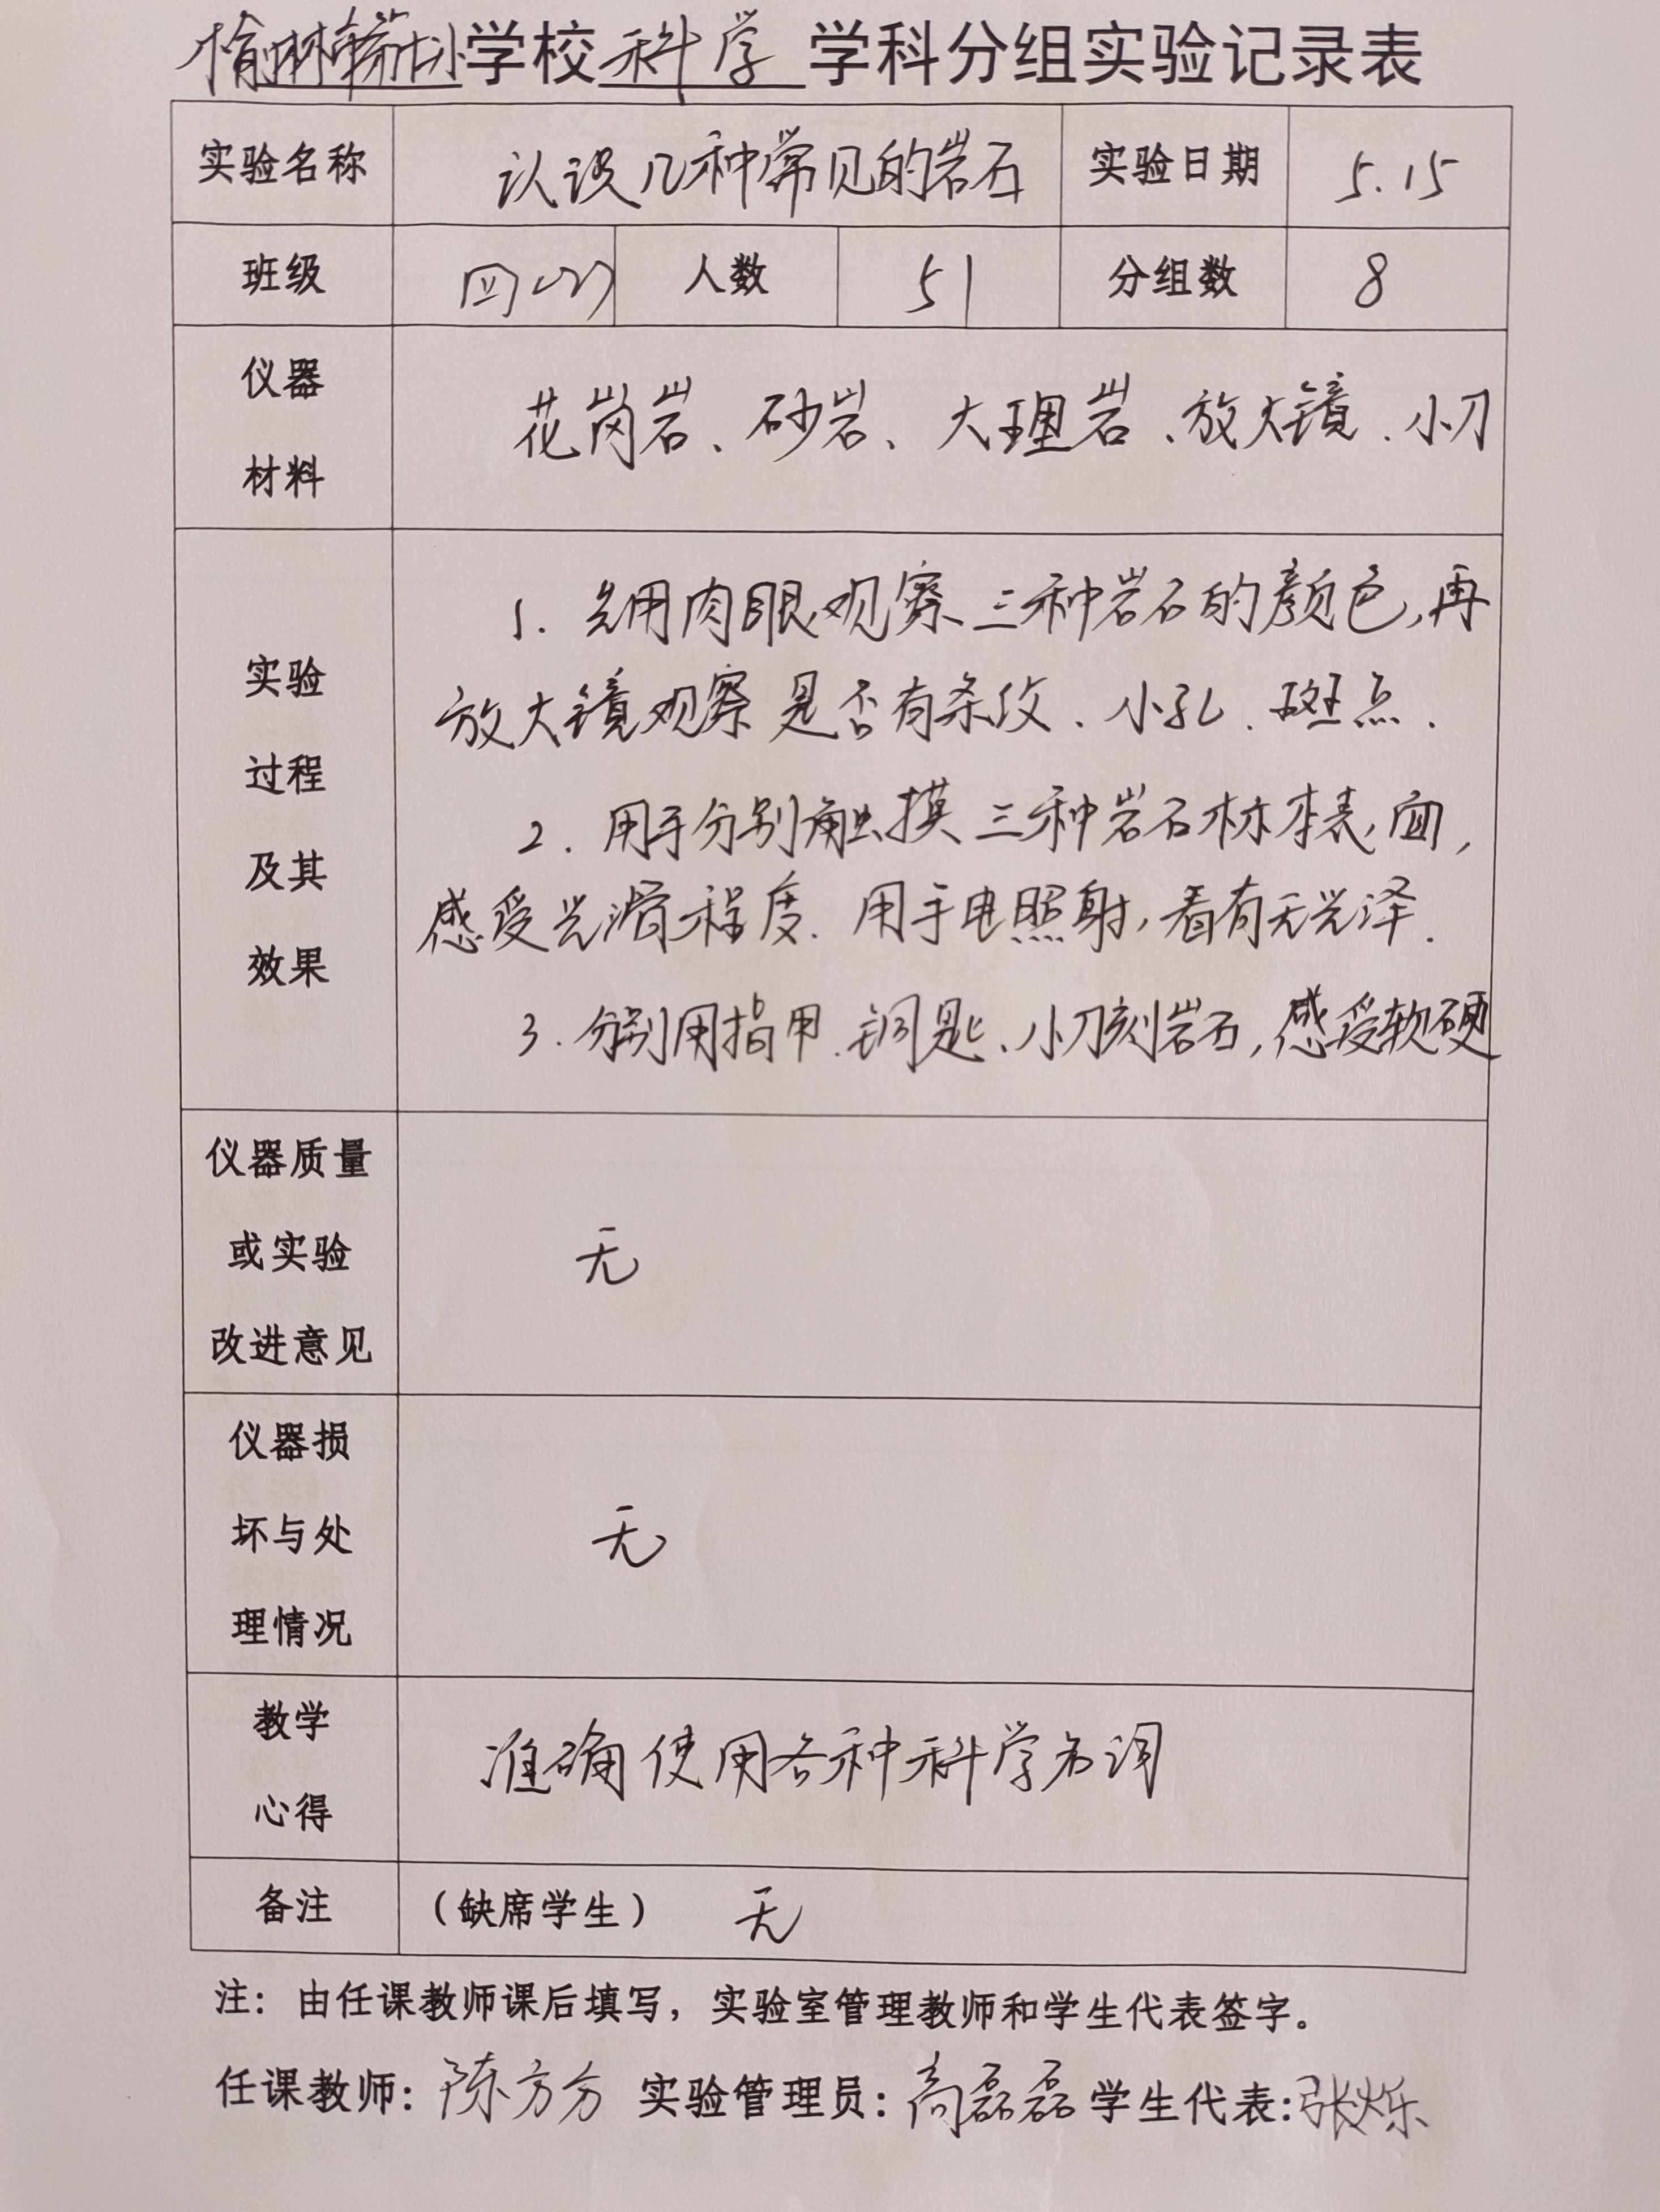 学校 科学 学科分组实验记录表
实验名称 认识几种常见的岩石 实验日期 5.15
班级 人数 51 分组数 8
仪器
材料
花岗岩、砂岩、大理岩、放大镜、小刀
实验
过程
及其
效果
1. 先用肉眼观察三种岩石的颜色,再
放大镜观察是否有条纹、小孔、斑点.
2. 用手分别触摸三种岩石标本表面,
感受光滑程度. 用手电照射,看有无光泽.
3. 分别用指甲、铜匙、小刀刻岩石,感受软硬
仪器质量
或实验
改进意见
无
仪器损
坏与处
理情况
无
教学
心得
准确使用各种科学名词
备注 (缺席学生) 无
注：由任课教师课后填写，实验室管理教师和学生代表签字。
任课教师: 陈方方 实验管理员: 高磊磊 学生代表: 张烁